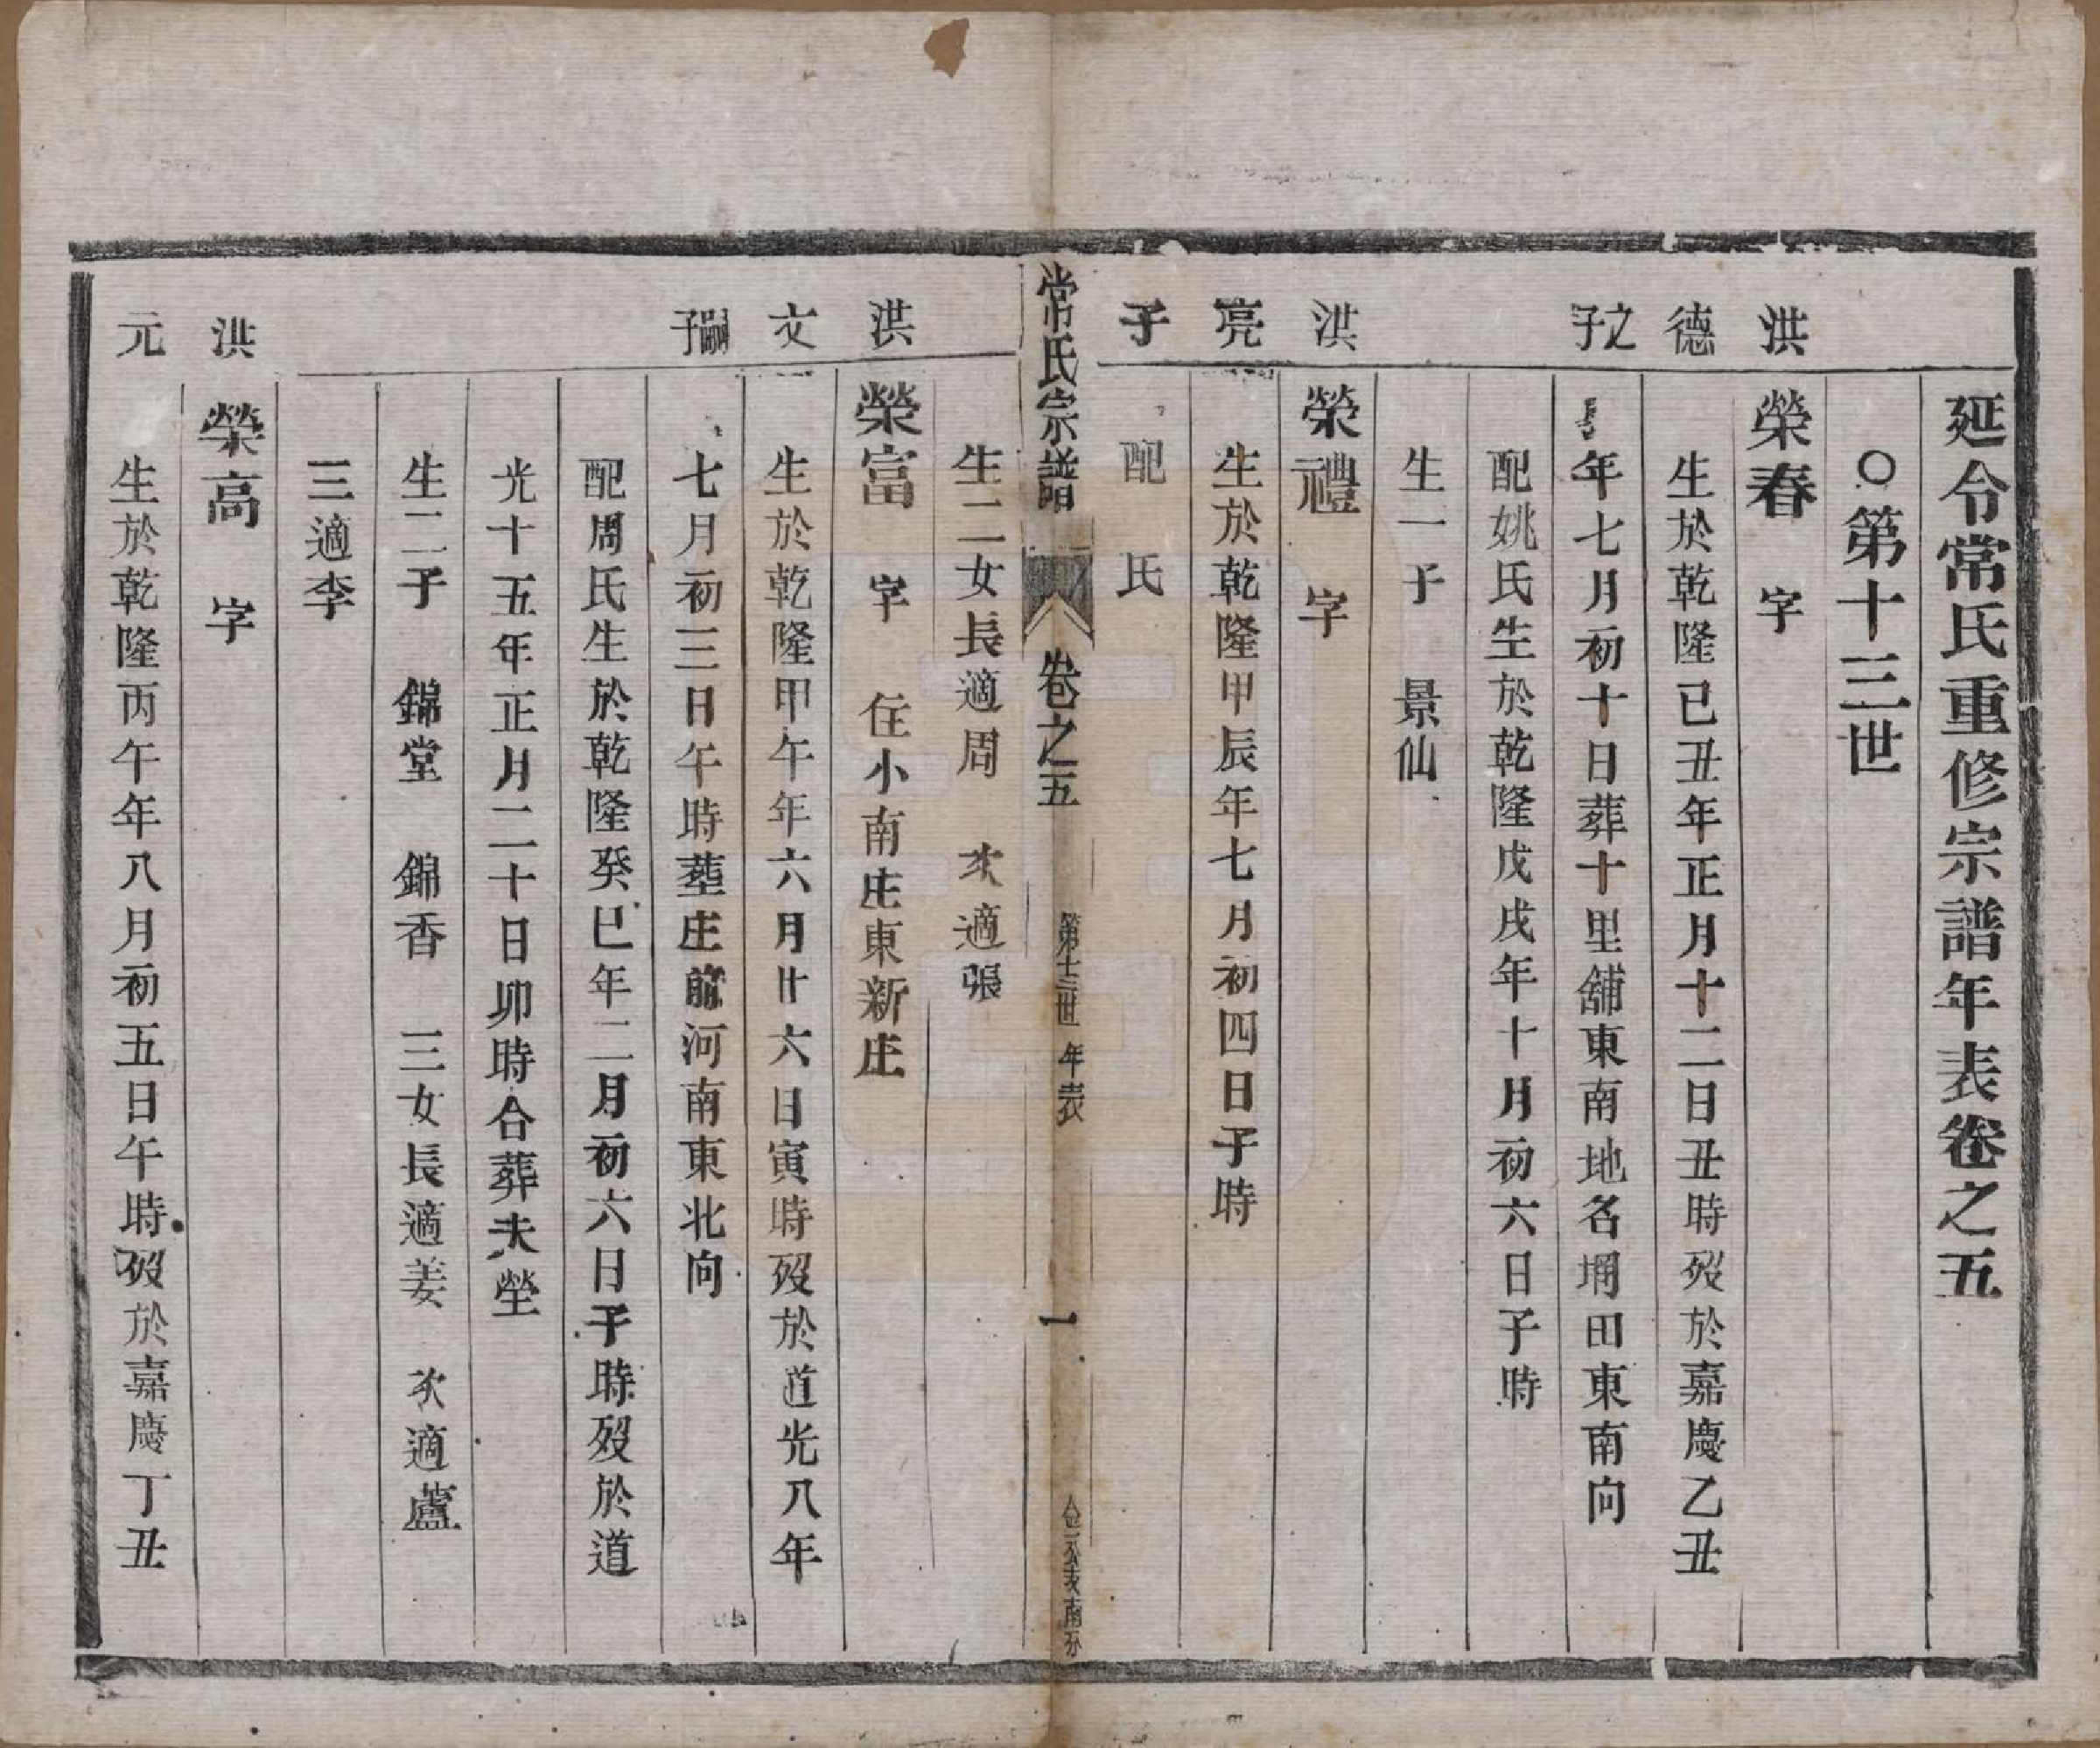 延令常氏重修宗譜年表卷之五
○第十三世
洪 榮春 字
德 生於乾隆已丑年正月十二日丑時歿於嘉慶乙丑
之子 年七月初十日葬十里舖東南地名堋田東南向
配姚氏生於乾隆戊戌年十月初六日子時
生一子 景仙
洪 榮禮 字
亮 生於乾隆甲辰年七月初四日子時
子 配 氏
常氏宗譜 卷之五 第十三世 年表 一
生二女長適周 次適張
洪 榮富 字 住小南庄東新庄
文 生於乾隆甲午年六月廿六日寅時歿於道光八年
嗣子 七月初三日午時葬庄前河南東北向
配周氏生於乾隆癸巳年二月初六日子時歿於道
光十五年正月二十日卯時合葬夫塋
生二子 錦堂 錦香 三女長適姜 次適蘆
三適李
洪 榮高 字
元 生於乾隆丙午年八月初五日午時歿於嘉慶丁丑